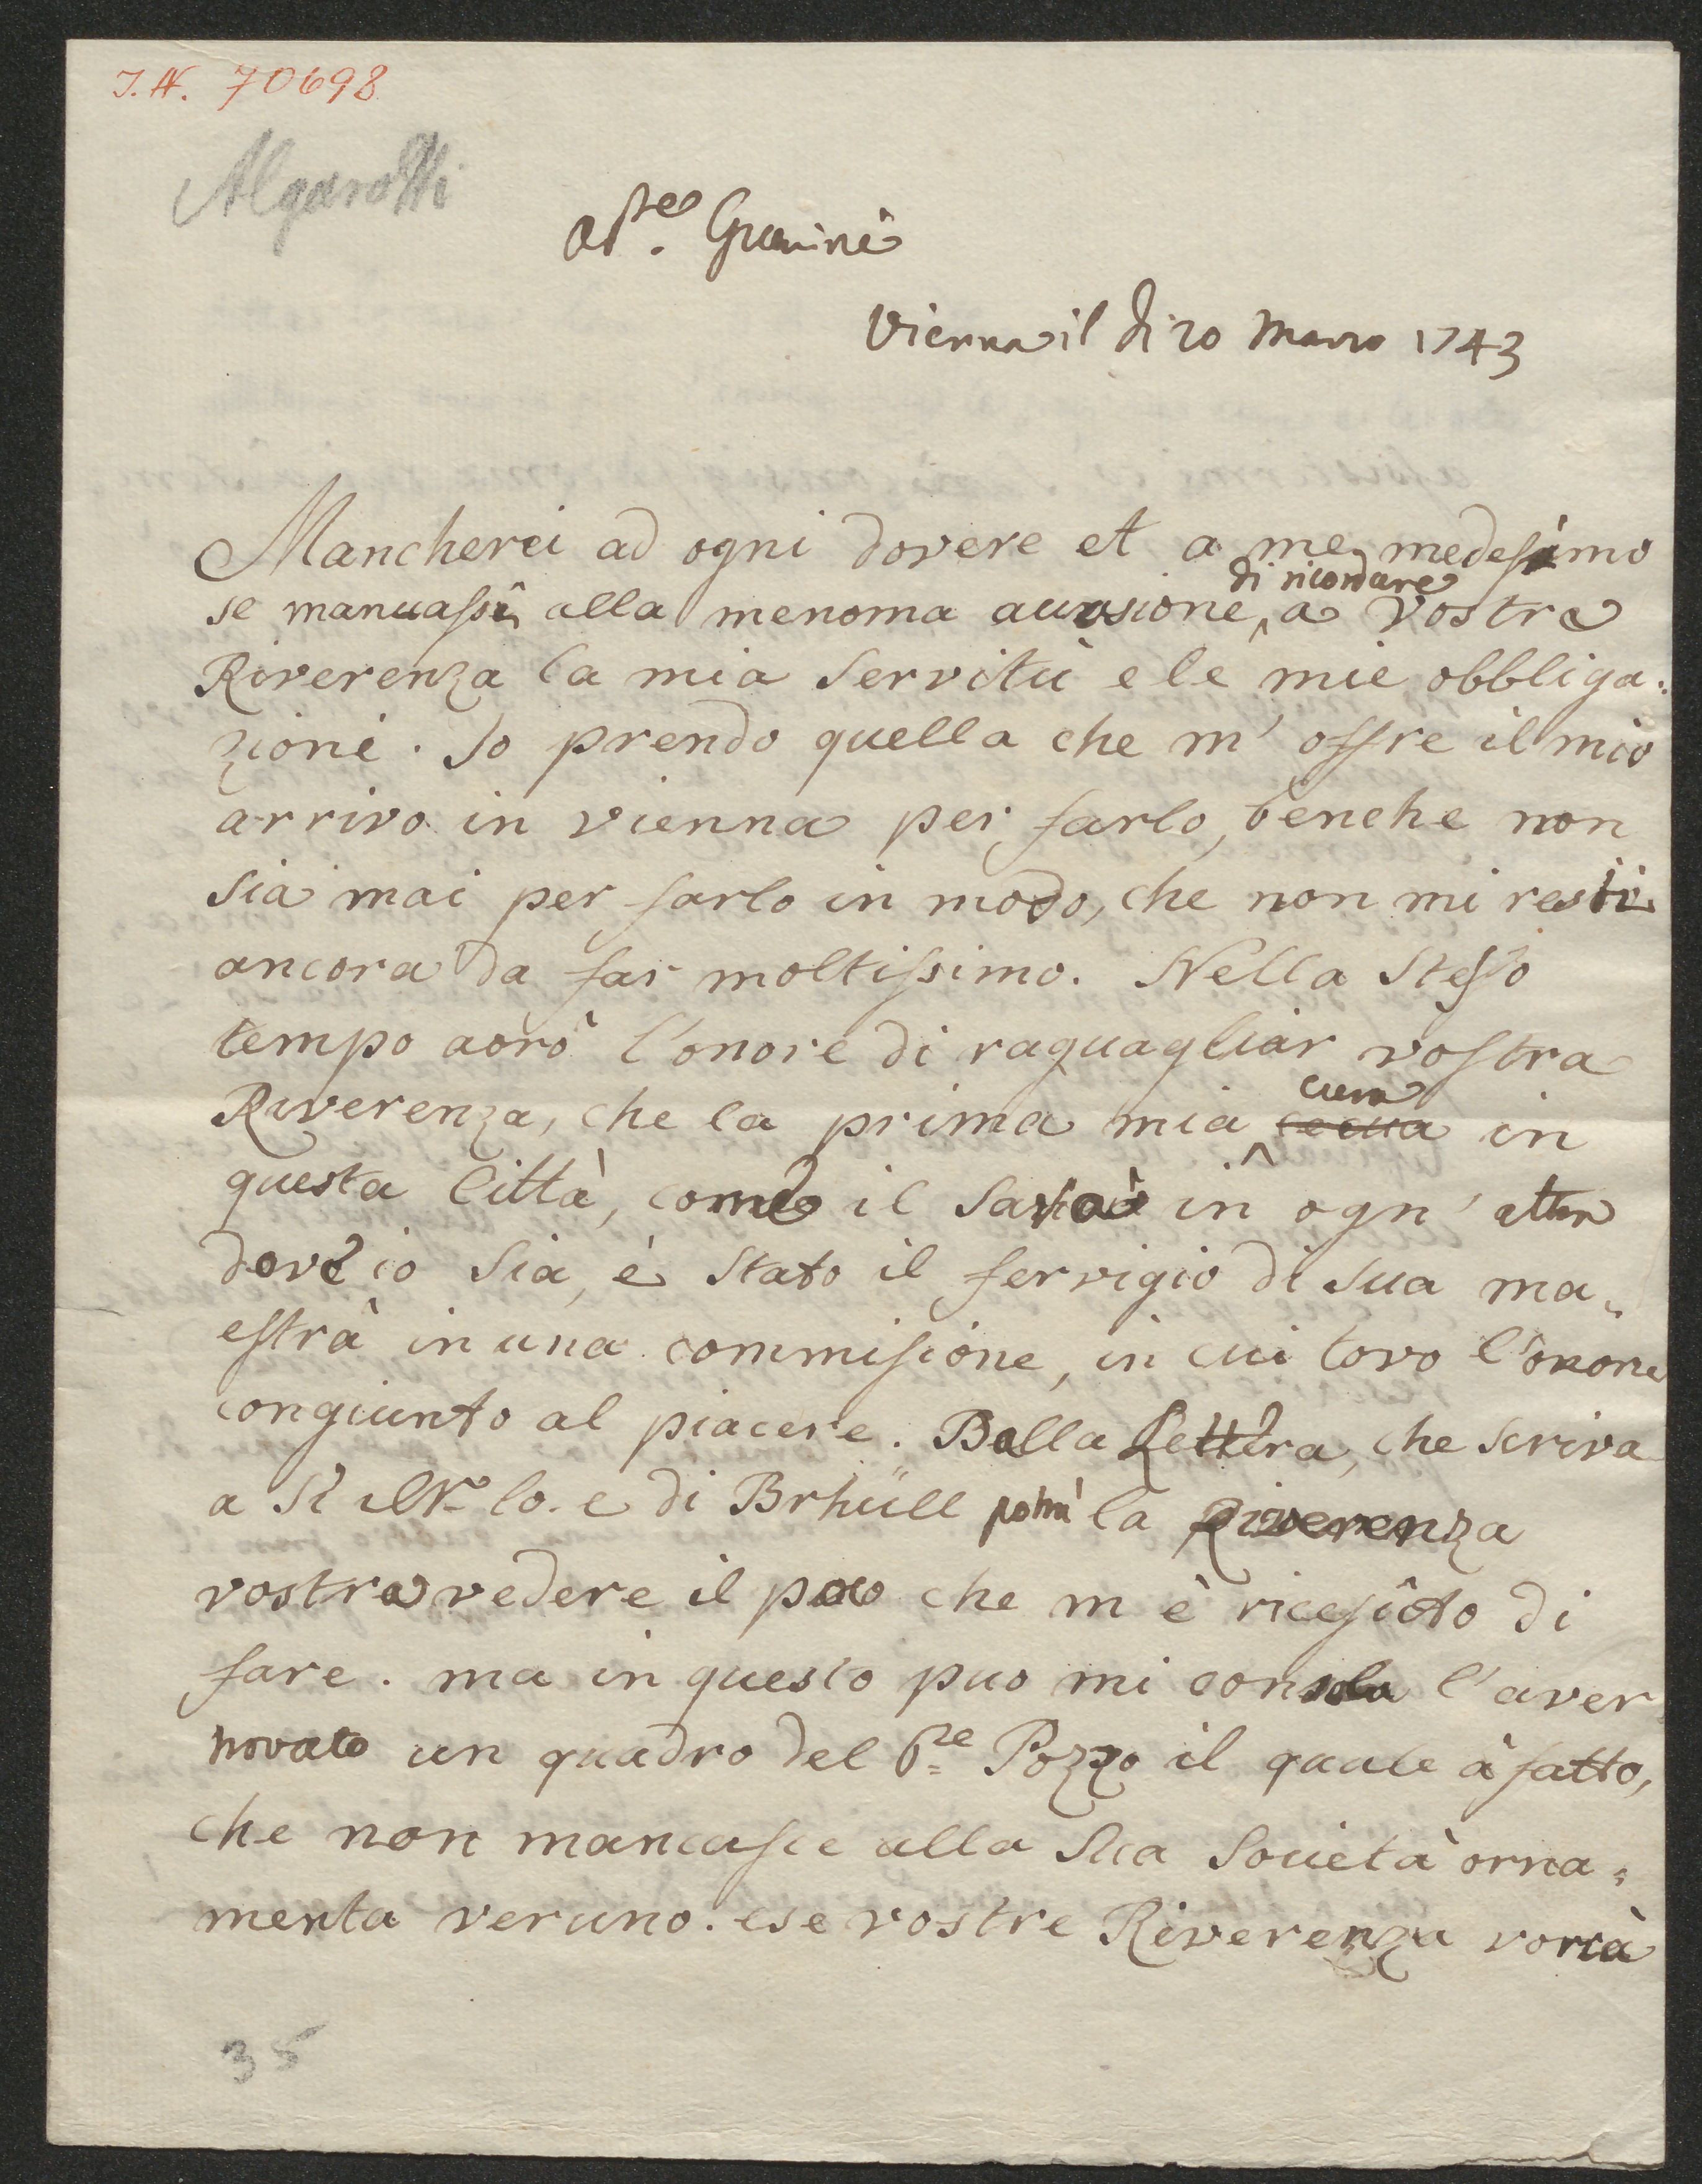 I.N. 70698
Algarotti
P.re Guarini
Vienna il di 20 Marzo 1743
Mancherei ad ogni dovere et a me medesimo
se mancassi alla menoma aucasione di ricordare a Vostra
Riverenza la mia Servitù e le mie obbliga:
zioni. Io prendo quella che m' offre il mio
arrivo in vienna per farlo, benche non
sia mai per farlo in modo, che non mi resti
ancora da far moltissimo. Nella Stesso
tempo aorò l'onore di raguagliar vostra
Riverenza, che la prima mia cura in
questa Città, come il Sarà in ogn' altra
dove io Sia, è Stato il servigio di Sua ma:
estrà in una commisione, in cui tovo l'onore
congiunto al piacere. Dalla Lettera, che scriva
a S. Co. e di Brhüll potrà la Riverenza
vostra vedere il poco che m è riesuto di
fare. ma in questo puo mi consola l'aver
trovato un quadro del P.re Pozzo il quale à fatto,
che non mancasse alla Sua Società orna:
menta veruno. e se vostre Riverenza vorrà
35